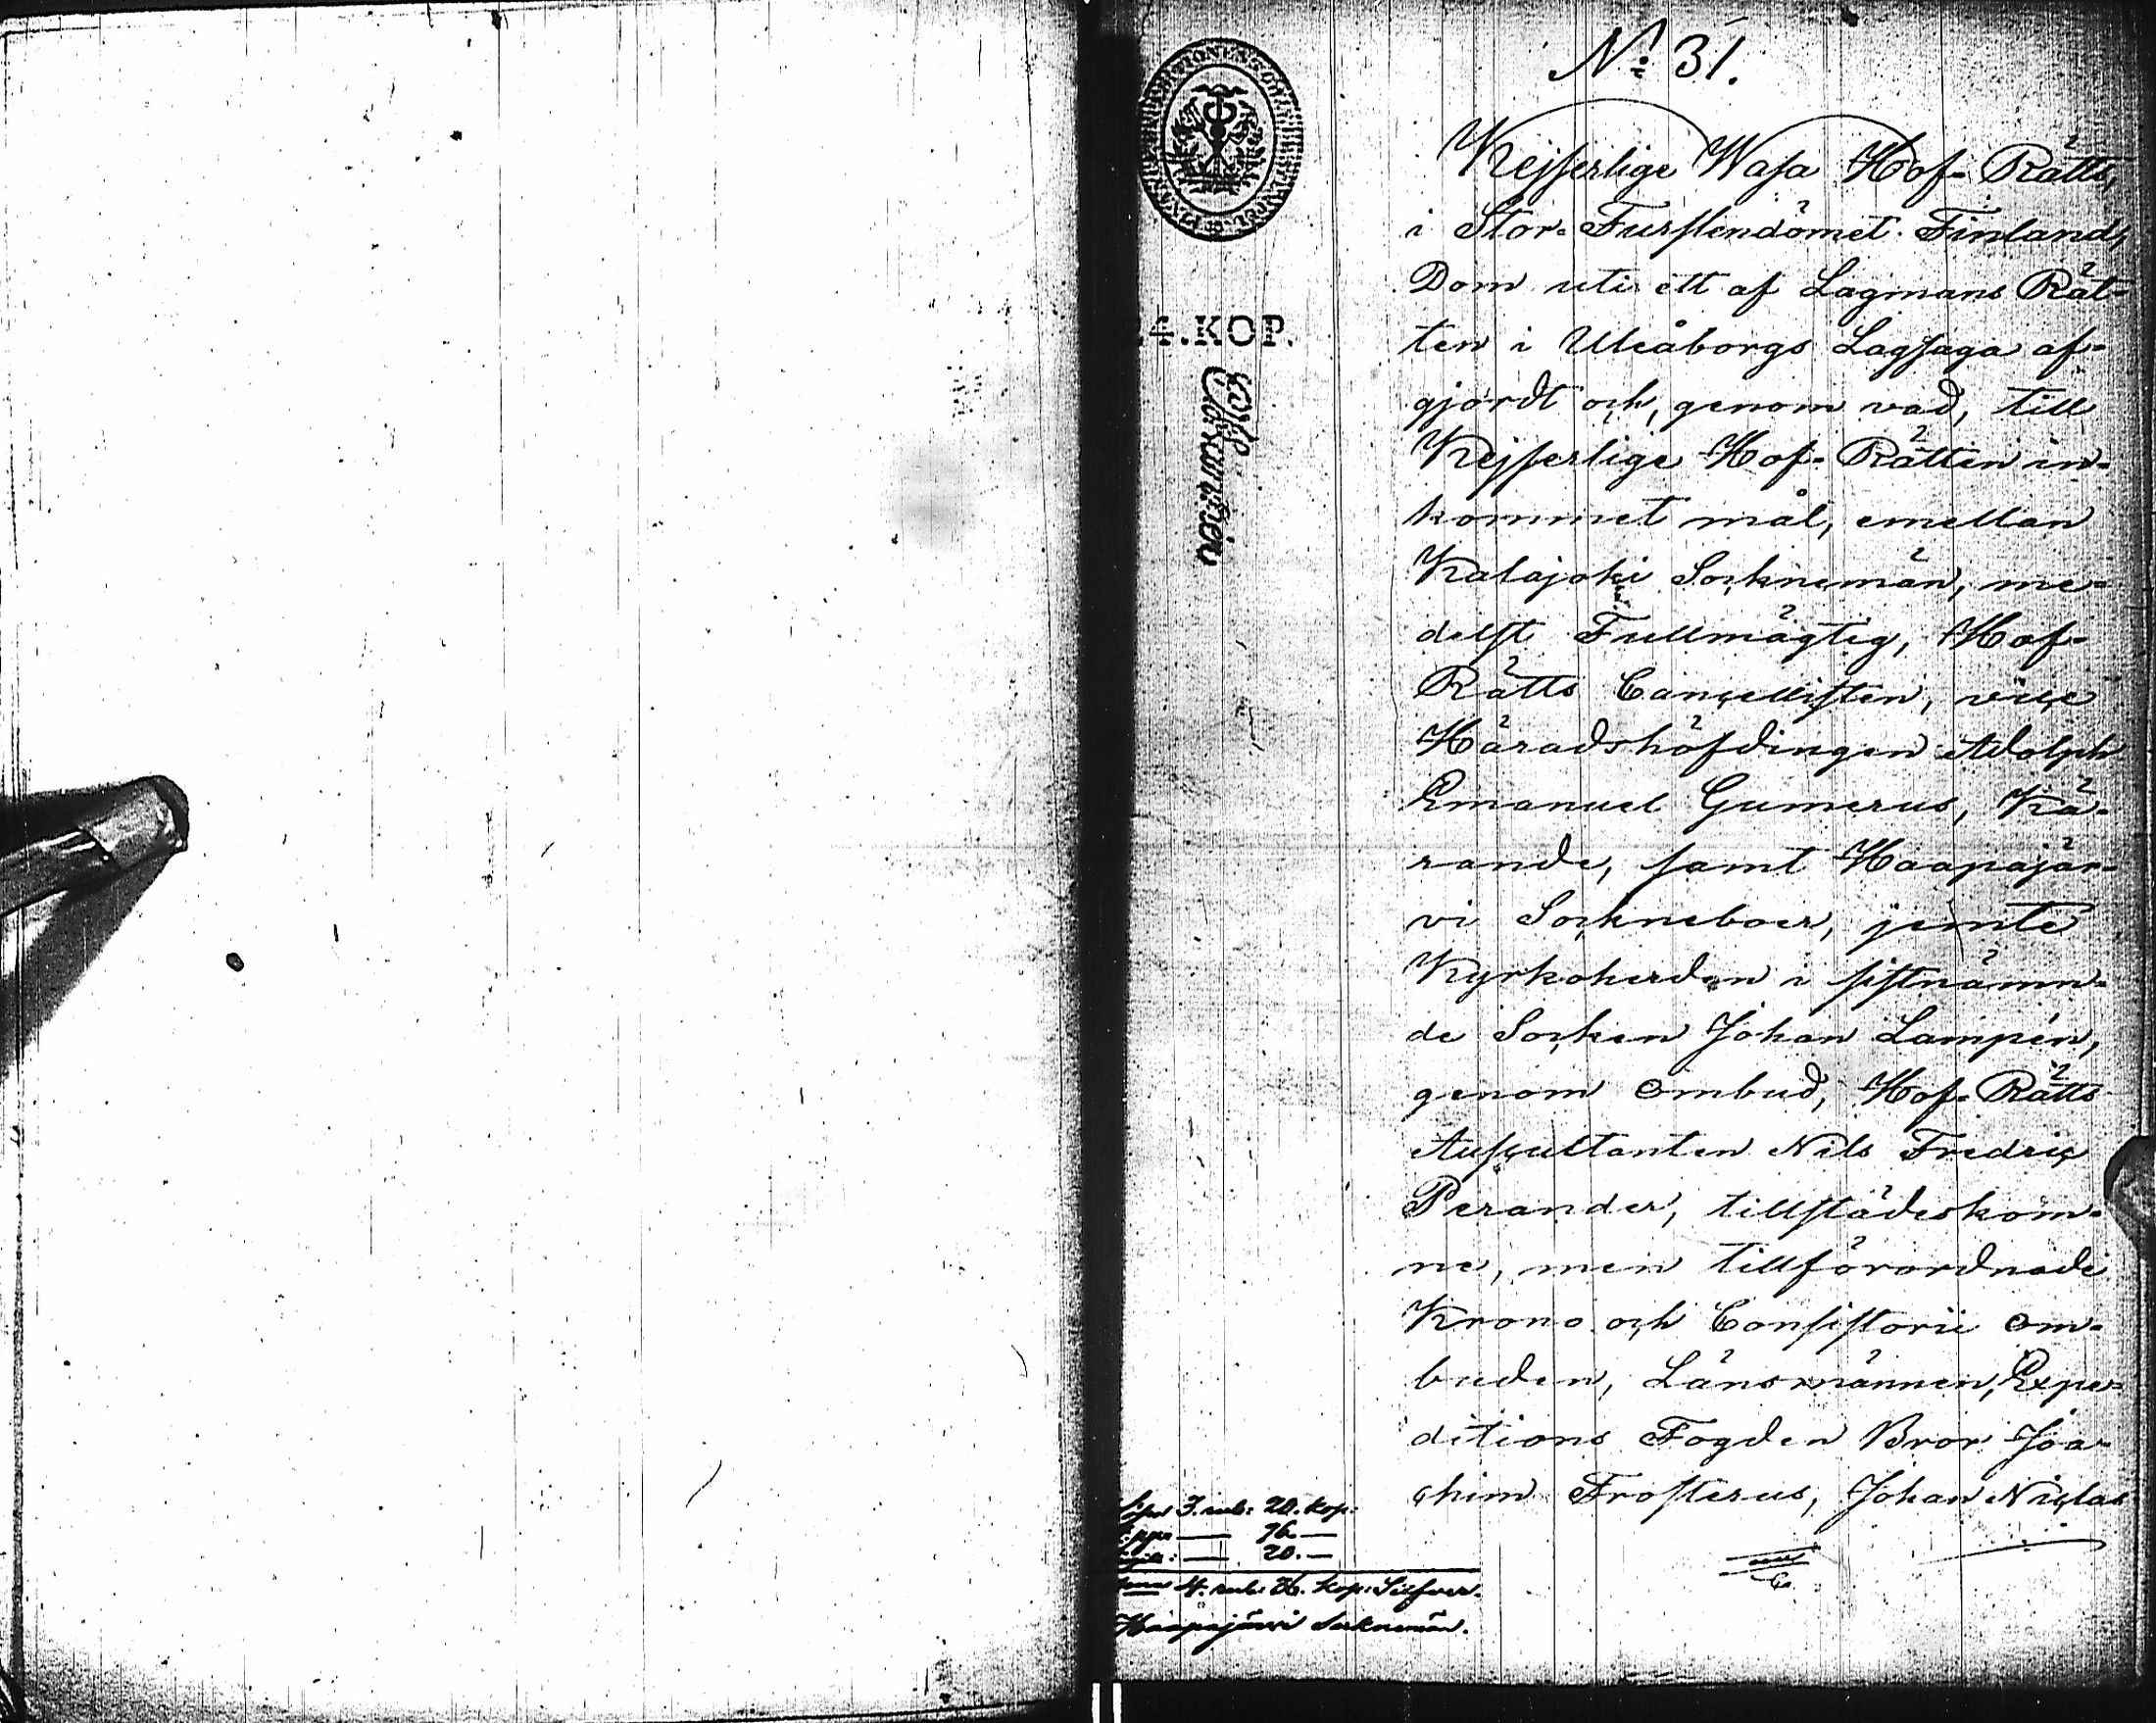 No 31.
Kejserlige Wasa Hof-Rätts,
i Stor-Furstendömet Finland,
Dom uti ett af Lagmans Rät-
ten i Uleåborgs Lagsaga af-
gjordt och, genom vad, till
Kejserlige Hof-Rätten in-
kommet mål, emellan
Kalajoki Sockenmän, me-
delst Fullmägtig, Hof-
Rätts Cancellisten, vice
Häradshöfdingen Adolph
Emanuel Gumerus, Kä-
rande, samt Haapajär-
vi Sockneboer, jemte
Kyrkoherden i sistnämn-
de Socken Johan Lampén,
genom ombud, Hof-Rätts
Auscultanten Nils Fredric
Perander, tillstädeskom-
ne, men tillförordnade
Krono och Consistorii om-
buden, Länsmännen, Expe-
ditions Fogden Bror Joa-
chim Frosterus, Johan Niclas
4.KOP.
3. rub: 20. kop:
96.—
20.—
4. rub: 36. kop: Silfver.
Haapajärvi Socknemän.